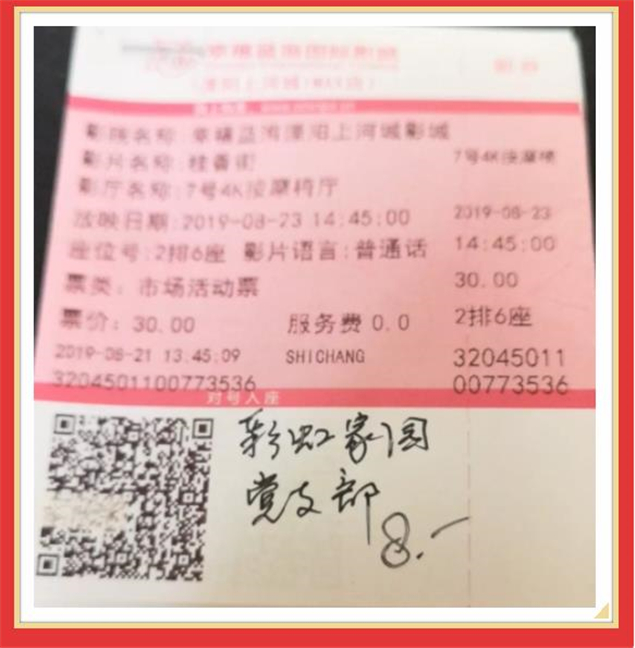 幸福蓝海国际影城
影院名称:幸福蓝海溧阳上河城影城
影片名称:桂香街
7号4K按摩椅
影厅名称:7号4K按摩椅厅
放映日期:2019-08-23 14:45:00
2019-08-23
座位号:2排6座 影片语言:普通话
14:45:00
票类: 市场活动票
30.00
票价: 30.00 服务费 0.0
2排6座
2019-08-21 13:45:09 SHICHANG
32045011
3204501100773536
00773536
对号入座
彩虹家园
党支部
8.-